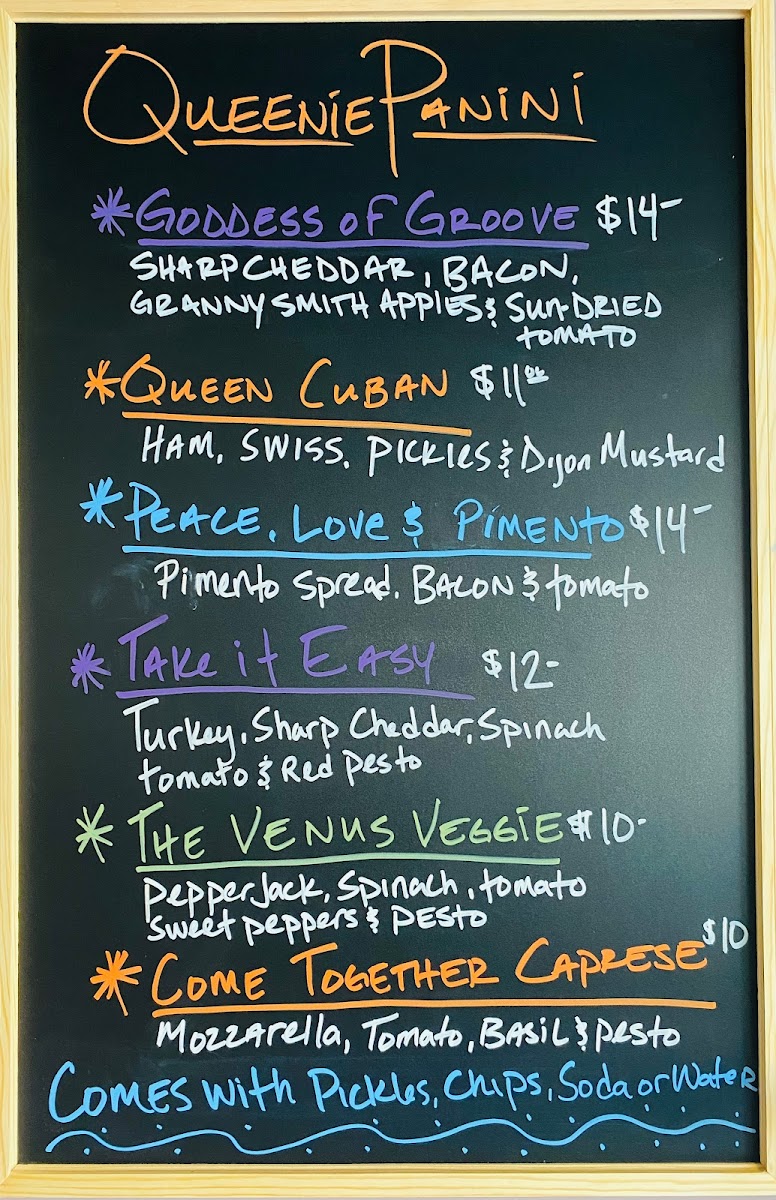 QUEENIE PANINI
*GODDESS OF GROOVE $14-
SHARP CHEDDAR, BACON,
GRANNY SMITH APPLES & SUN-DRIED
TOMATO
*QUEEN CUBAN $11.00
HAM, SWISS, PICKLES & Dijon Mustard
*PEACE, LOVE & PIMENTO $14-
Pimento Spread, BACON & tomato
*TAKE iT EASY $12-
Turkey, Sharp Cheddar, Spinach
tomato & Red Pesto
*THE VENUS VEGGIE $10-
Pepper Jack, Spinach, tomato
Sweet peppers & PESTO
*COME TOGETHER CAPRESE $10
Mozzarella, Tomato, BASIL & pesto
COMES WITH PICKLES, CHIPS, Soda or Water